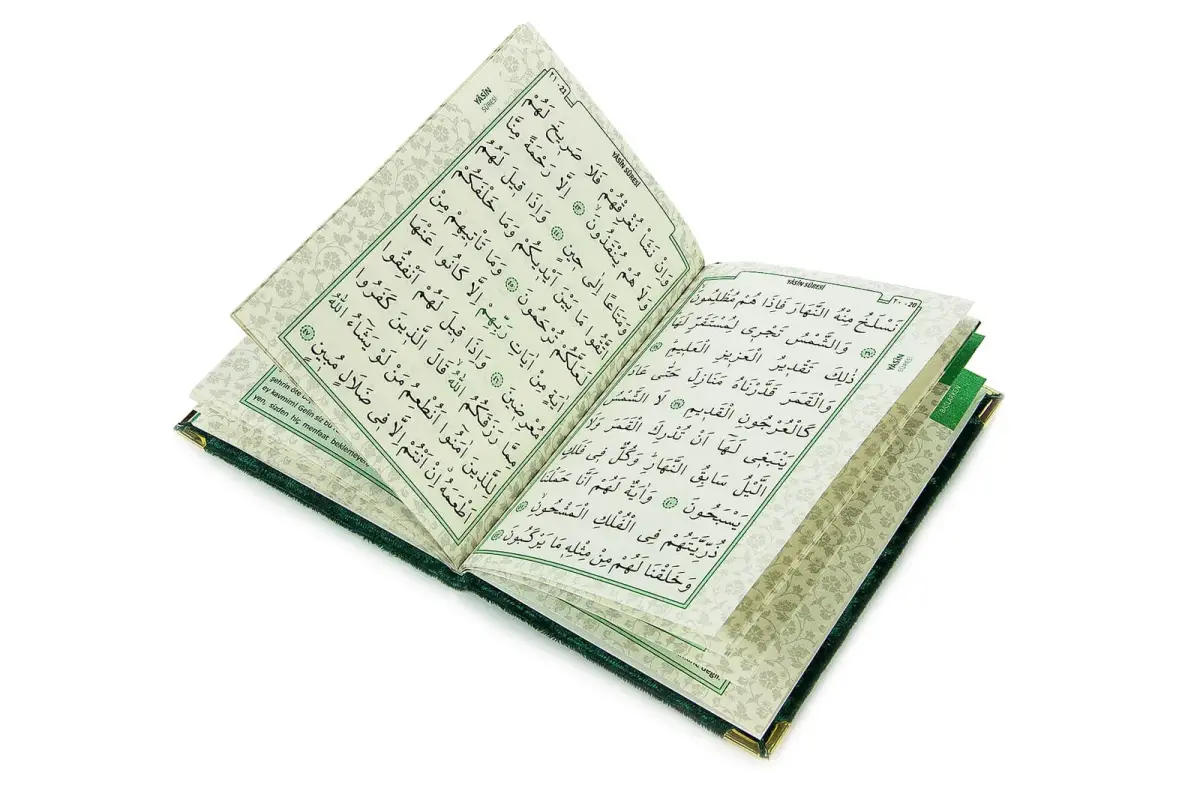 YÂSÎN SÛRESİ
٢٠ - 20
YÂSÎN
SÛRESİ
نَسْلَخُ مِنْهُ النَّهَارَ فَاِذَا هُمْ مُظْلِمُونَ ﴿٣٧﴾
وَالشَّمْسُ تَجْرٖى لِمُسْتَقَرٍّ لَهَا
ذٰلِكَ تَقْدٖيرُ الْعَزٖيزِ الْعَلٖيمِ ﴿٣٨﴾
وَالْقَمَرَ قَدَّرْنَاهُ مَنَازِلَ حَتّٰى عَادَ
كَالْعُرْجُونِ الْقَدٖيمِ ﴿٣٩﴾ لَا الشَّمْسُ
يَنْبَغٖى لَهَٓا اَنْ تُدْرِكَ الْقَمَرَ وَلَا
الَّيْلُ سَابِقُ النَّهَارِ وَكُلٌّ فٖى فَلَكٍ
يَسْبَحُونَ ﴿٤٠﴾ وَاٰيَةٌ لَهُمْ اَنَّا حَمَلْنَا
ذُرِّيَّتَهُمْ فِى الْفُلْكِ الْمَشْحُونِ ﴿٤١﴾
وَخَلَقْنَا لَهُمْ مِنْ مِثْلِهٖ مَا يَرْكَبُونَ ﴿٤٢﴾
YÂSÎN SÛRESİ
٢١ - 21
YÂSÎN
SÛRESİ
وَاِنْ نَشَأْ نُغْرِقْهُمْ فَلَا صَرٖيخَ لَهُمْ
وَلَا هُمْ يُنْقَذُونَ ﴿٤٣﴾ اِلَّا رَحْمَةً مِنَّا
وَمَتَاعًا اِلٰى حٖينٍ ﴿٤٤﴾ وَاِذَا قٖيلَ لَهُمُ
اتَّقُوا مَا بَيْنَ اَيْدٖيكُمْ وَمَا خَلْفَكُمْ
لَعَلَّكُمْ تُرْحَمُونَ ﴿٤٥﴾ وَمَا تَاْتٖيهِمْ مِنْ
اٰيَةٍ مِنْ اٰيَاتِ رَبِّهِمْ اِلَّا كَانُوا عَنْهَا
مُعْرِضٖينَ ﴿٤٦﴾ وَاِذَا قٖيلَ لَهُمْ اَنْفِقُوا
مِمَّا رَزَقَكُمُ اللّٰهُ قَالَ الَّذٖينَ كَفَرُوا
لِلَّذٖينَ اٰمَنُٓوا اَنُطْعِمُ مَنْ لَوْ يَشَٓاءُ اللّٰهُ
اَطْعَمَهُ اِنْ اَنْتُمْ اِلَّا فٖى ضَلَالٍ مُبٖينٍ ﴿٤٧﴾
şehrin öte
ey kavmim! Gelin siz bu
yen, sizden hiç menfaat beklemeyen
değil.